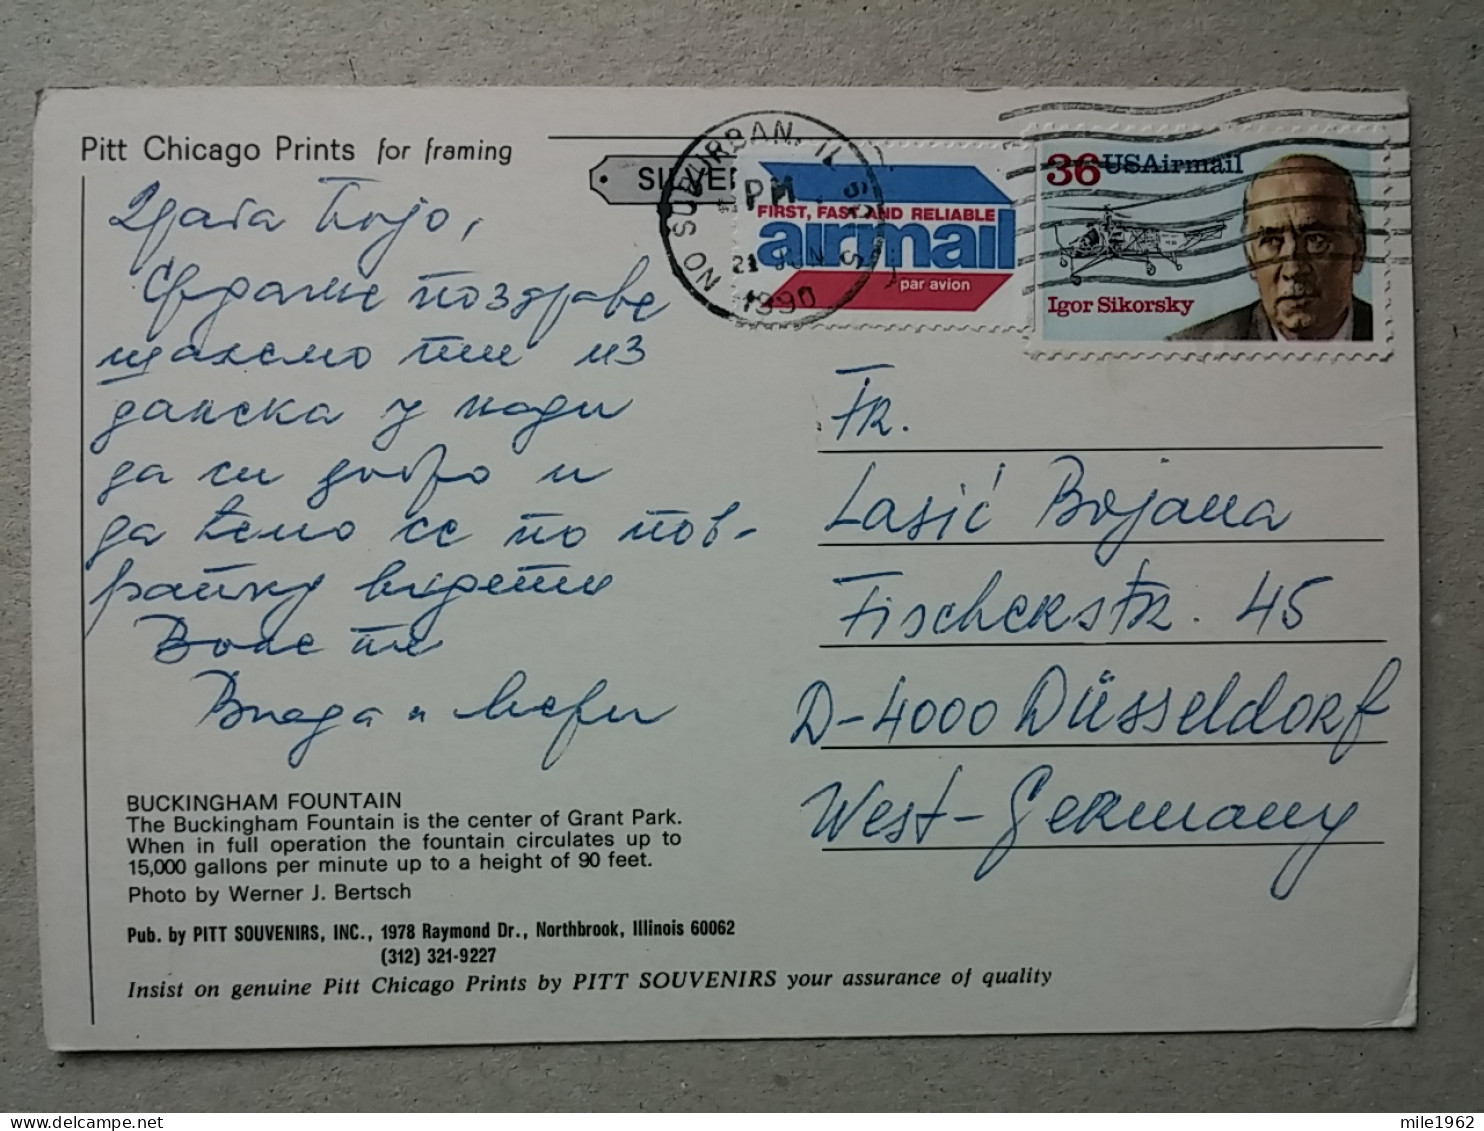 Pitt Chicago Prints for framing
SILVER
NO SUBURBAN, IL
PM
21 JUN
1990
FIRST, FAST AND RELIABLE
airmail
par avion
36 USAirmail
Igor Sikorsky
Драга Бојо,
Срдачне поздраве
шаљемо ти из
у нади
да си добро и
да ћемо се по пов-
ратку видети
Воле те
Влада и
Fr.
Lasić Bojana
Fischerstr. 45
D-4000 Düsseldorf
West-Germany
BUCKINGHAM FOUNTAIN
The Buckingham Fountain is the center of Grant Park.
When in full operation the fountain circulates up to
15,000 gallons per minute up to a height of 90 feet.
Photo by Werner J. Bertsch
Pub. by PITT SOUVENIRS, INC., 1978 Raymond Dr., Northbrook, Illinois 60062
(312) 321-9227
Insist on genuine Pitt Chicago Prints by PITT SOUVENIRS your assurance of quality
mile1962